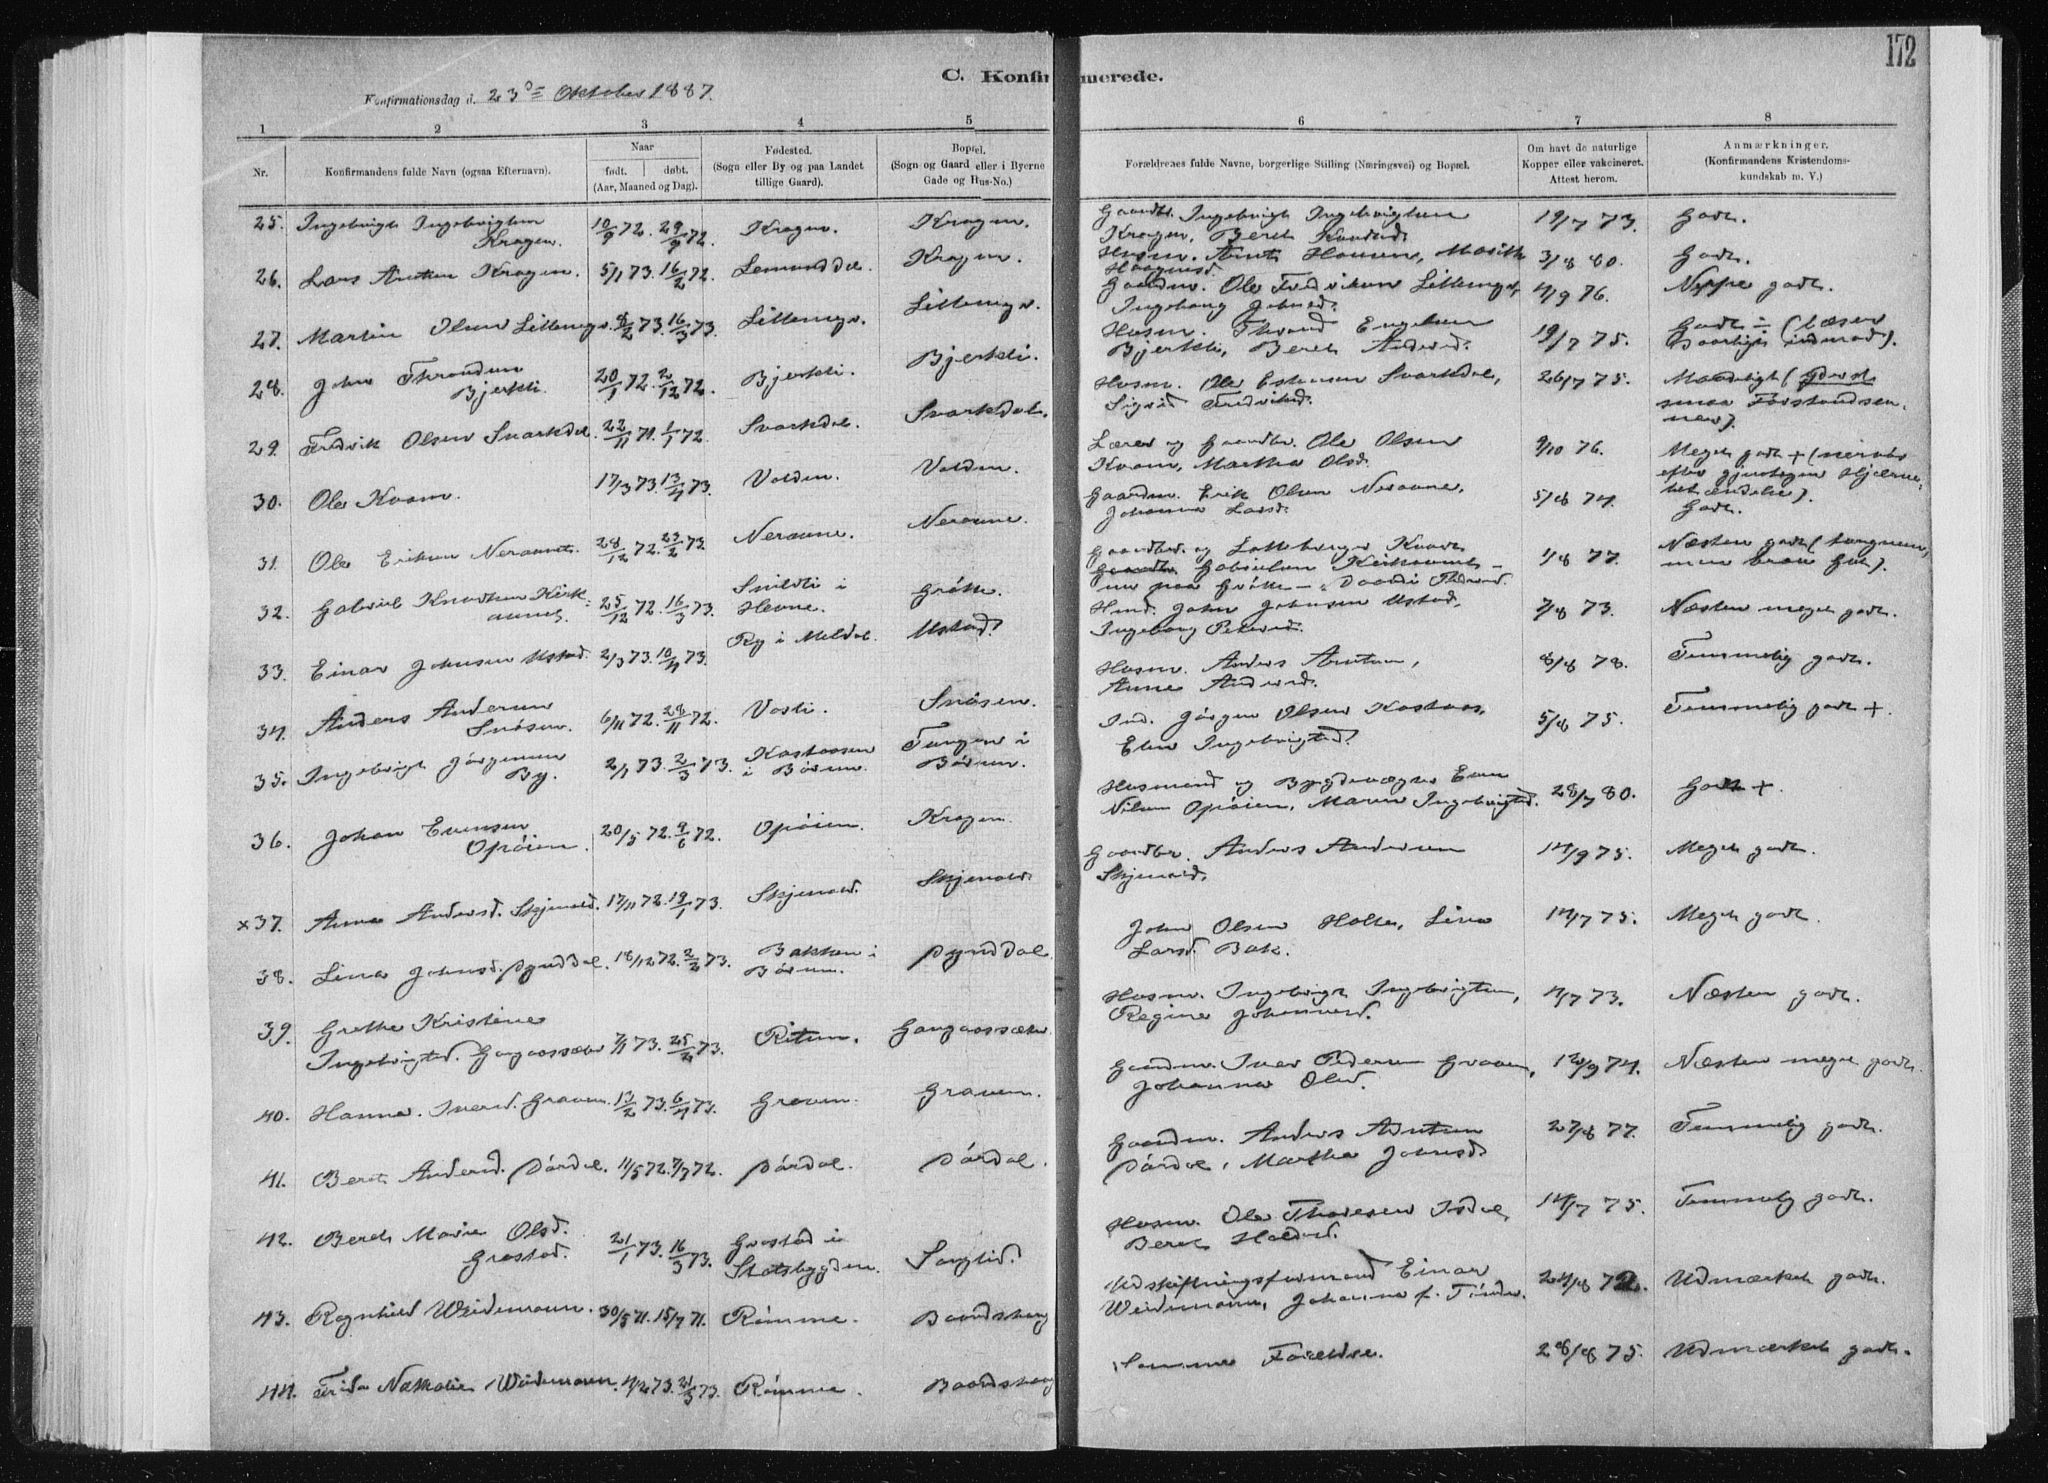 172
C. Konfirmerede.
Konfirmationsdag d. 23de Oktober 1887.
1 2 3 4 5 6 7 8
Nr. Konfirmandens fulde Navn (ogsaa Efternavn). Naar født. døbt. (Aar, Maaned og Dag). Fødested. (Sogn eller By og paa Landet tillige Gaard). Bopæl. (Sogn og Gaard eller i Byerne Gade og Hus-No.) Forældrenes fulde Navne, borgerlige Stilling (Næringsvei) og Bopæl. Om havt de naturlige Kopper eller vakcineret. Attest herom. Anmærkninger. (Konfirmandens Kristendomskundskab m. V.)
25. Ingebrigt Ingebrigtsen Kragen. 10/9 72. 29/9 72. Kragen. Kragen. Gaardbr. Ingebrigt Ingebrigtsen Kragen, Beret 19/7 73. Godt.
26. Lars Arntsen Kragen. 5/1 73. 16/2 72. Kragen. Husm. Arnt Hansen, 3/8 80. Godt.
27. Martin Olsen 8/2 73. 16/3 73. Gaardm. Ole Fredriksen Ingeborg Johnsd. 4/9 76. Neppe godt.
28. John Throndsen Bjerkli. 20/1 72. 2/12 72. Bjerkli. Bjerkli. Husm. Thrond Engelsen Bjerkli, Beret Andersd. 19/7 75. Godt ÷ (læser daarligt indenad).
29. Fredrik Olsen Svarkdal. 22/11 71. 1/1 72. Svarkdal. Svarkdal. Husm. Ole Estensen Svarkdal, Sigrid Fredriksd. 26/7 75. Maadeligt (yderst smaa Forstandsevner).
30. Ole Kvam. 17/3 73. 13/4 73. Volden. Volden. Lærer og Gaardbr. Ole Olsen Kvam, Martha Olsd. 9/10 76. Meget godt + (nervøs efter gjentagen Hjernebetændelse).
31. Ole Eriksen Neraune. 28/12 72. 23/2 73 Neraune. Neraune. Gaardm. Erik Olsen Neraune, Johanna Larsd. 5/8 74. Godt.
32. Gabriel Knudsen Kirkaunet. 25/12 72. 16/3 73. Snildli i Hevne. Grøtte. Gaardbr. og Gabrielsen Kirkaunet - nu paa Grøtte - 1/8 77. Næsten godt (tungnem, men brav Gut).
33. Einar Johnsen Ustad. 2/3 73. 10/4 73. Ry i Meldal. Ustad. Husmd. John Johnsen Ustad, Ingeborg Pedersd. 7/8 73. Næsten meget godt.
34. Anders Andersen Snøsen. 6/11 72. 28/11 72. Vasli. Snøsen. Husm. Anders Arntsen, Anne Andersd. 8/8 78. Temmelig godt.
35. Ingebrigt Jørgensen By. 2/1 73. 2/3 73. Kastaasen i Børsen. Tangen i Børsen. Ind. Jørgen Olsen Kastaas, Elen Ingebrigtsd. 5/8 75. Temmelig godt +.
36. Johan Evensen Opøien. 20/5 72. 9/6 72. Opøien. Kragen. Husmand og Bygdevægter Even Nilsen Opøien, Maren Ingebrigtsd. 28/7 80. Godt +.
x37. Anna Andersd. Skjenald. 17/11 72. 19/1 73. Skjenald. Skjenald. Gaardbr. Anders Andersen Skjenald. 14/9 75. Meget godt.
38. Lina Johnsd. Synddal. 18/12 72. 2/2 73. Bakken i Børsen. Synddal. John Olsen Holte, Lina Larsd. Bak. 14/7 75. Meget godt.
39. Grethe Kristine Ingebrigtsd. Gangaassæter 7/1 73. 25/2 73. Ritum. Gangaassæter Husm. Ingebrigt Ingebrigtsen, Regine Johannesd. 4/7 73. Næsten godt.
40. Hanna. Iversd. Graven. 13/2 73. 6/4 73. Graven. Graven. Gaardm. Iver Pedersen Graven, Johanna Olsd. 12/9 74. Næsten meget godt.
41. Beret Andersd. Sørdal. 11/5 72. 7/7 72. Sørdal. Sørdal. Gaardm. Anders Arntsen Sørdal, Martha Johnsd. 27/8 77. Temmelig godt.
42. Beret Marie Olsd. Grøstad. 21/1 73. 16/3 73. Grøstad i Statsbygden. Songlid. Husm. Ole Thoresen Isdal, Beret Haldosd. 14/7 75. Temmelig godt.
43. Ragnhild Weidemann. 30/5 71. 15/7 71. Rømme. Baardshaug Udskiftningsformand Einar Weidemann, Johanna f. Tønder. 24/8 72. Udmærket godt.
44. Frida Nathalie Weidemann. 4/2 73. 21/3 73. Rømme. Baardshaug Samme Forældre. 28/8 75. Udmærket godt.